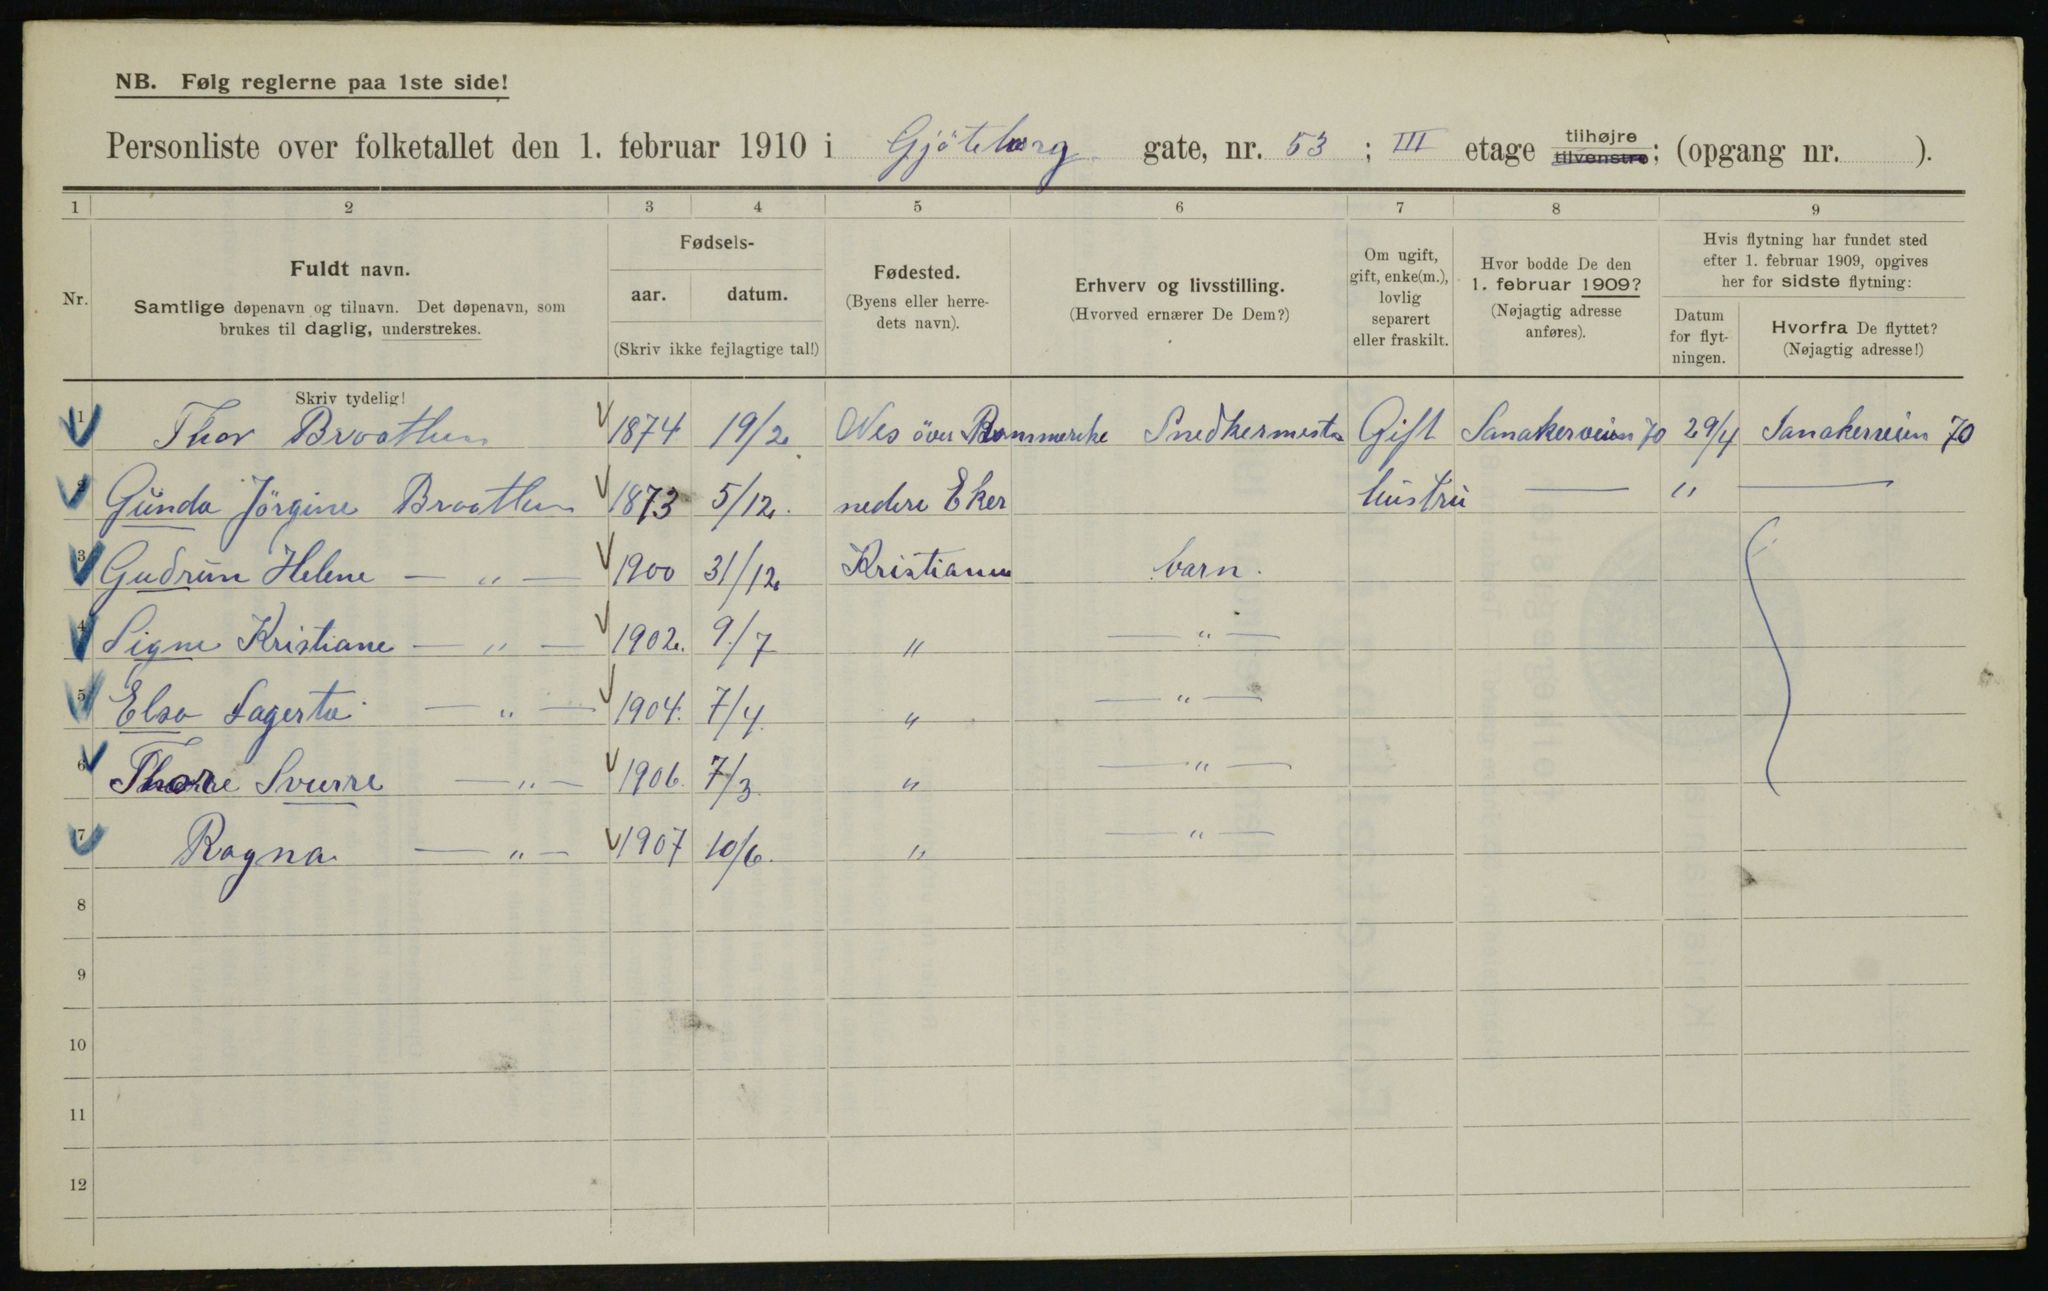 NB. Følg reglerne paa 1ste side!
Personliste over folketallet den 1. februar 1910 i Gjöteborg gate, nr. 53 ; III etage tilhøjre tilvenstre; (opgang nr. ).
1 2 3 4 5 6 7 8 9
Nr.
Fuldt navn.
Samtlige døpenavn og tilnavn. Det døpenavn, som
brukes til daglig, understrekes.
Fødsels-
aar. datum.
(Skriv ikke fejlagtige tal!)
Fødested.
(Byens eller herre-
dets navn).
Erhverv og livsstilling.
(Hvorved ernærer De Dem?)
Om ugift,
gift, enke(m.),
lovlig
separert
eller fraskilt.
Hvor bodde De den
1. februar 1909?
(Nøjagtig adresse
anføres).
Hvis flytning har fundet sted
efter 1. februar 1909, opgives
her for sidste flytning:
Datum
for flyt-
ningen.
Hvorfra De flyttet?
(Nøjagtig adresse!)
Skriv tydelig!
1 Thor Broathen 1874 19/2 Nes över Rommerike Snedkermester Gift Sanakerveien 70 29/4 Sanakerveien 70
2 Gunda Jörgine Broathen 1873 5/12. nedere Eker hustru — " —
3 Gudrun Helene — " — 1900 31/12 Kristiania barn.
4 Signe Kristiane — " — 1902. 9/7 " — " —
5 Elsa Lagerta — " — 1904. 7/4. " — " —
6 Thore Sverre — " — 1906. 7/3. " — " —
7 Ragna — " — 1907 10/6. " — " —
8
9
10
11
12